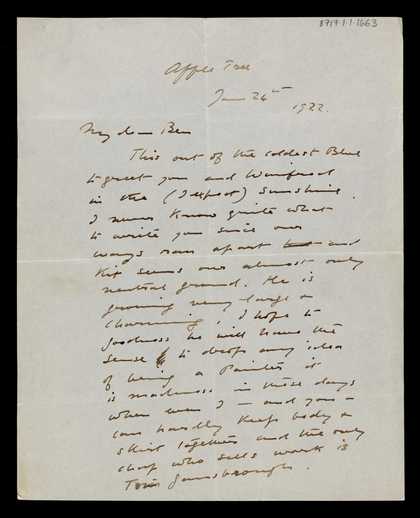 8717.1.1.1663
Apple Tree
Jan 26th
1922.
My dear Ben
This out of the coldest Blue
to greet you and Winifred
in the (I expect) Sunshine.
I never know quite what
to write you since our
ways ran apart and
Kit seems our almost only
neutral ground. He is
growing very large &
charming, I hope to
goodness he will have the
sense to drop any idea
of being a Painter it
is madness in these days
when even I – and you –
can hardly keep body &
shirt together and the only
chap who sells work is
Tom Gainsborough.